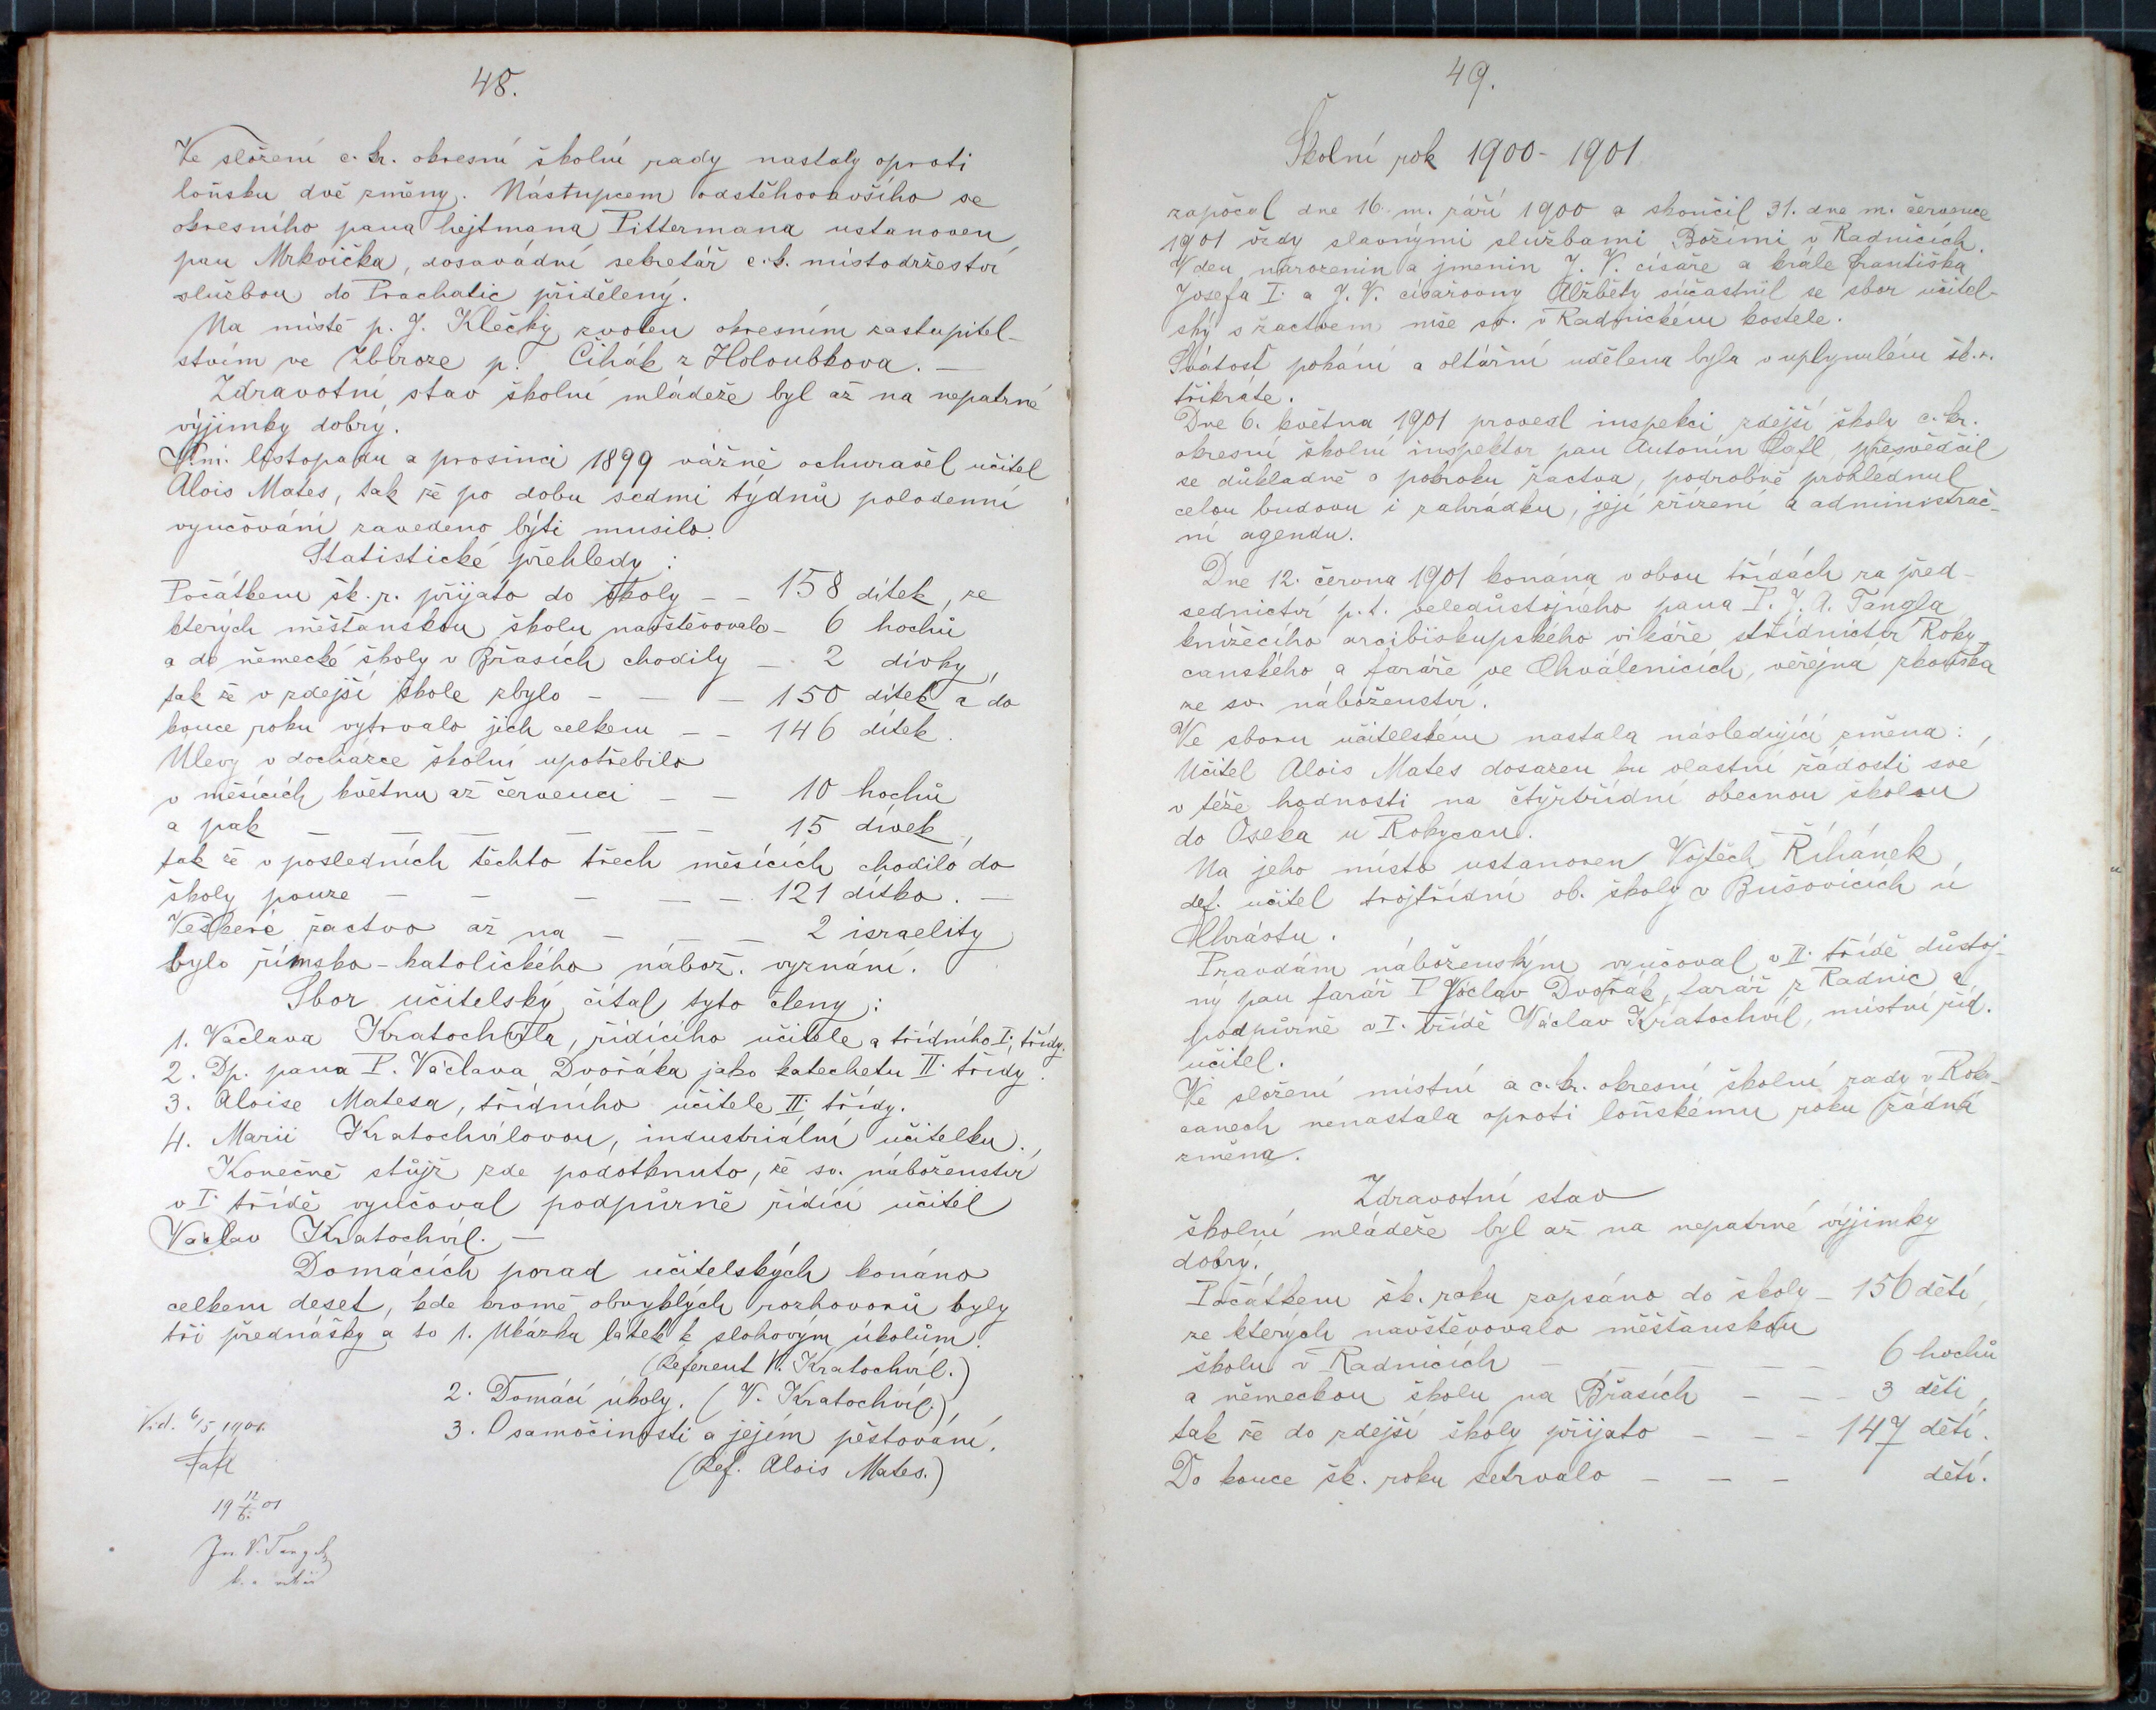 48.
Ve složení c. kr. okresní školní rady nastaly oproti
loňsku dvě změny. Nástupcem odstěhovavšího se
okresního pana hejtmana Pittermana ustanoven
pan Mrkvička, dosavádní sekretář c. k. místodržitelství
službou do Prachatic přidělený.
Na místě p. J. Klečky zvolen okresním zastupitel-
stvím ve Zbiroze p. Čihák z Holoubkova. —
Zdravotní stav školní mládeže byl až na nepatrné
výjimky dobrý.
V m. listopadu a prosinci 1899 vážně ochuravěl učitel
Alois Mates, tak že po dobu sedmi týdnů polodenní
vyučování zavedeno býti musilo.
Statistické přehledy:
Počátkem šk. r. přijato do školy – – 158 dítek, ze
kterých měšťanskou školu navštěvovalo – 6 hochů
a do německé školy v Břasích chodily – 2 dívky,
tak že v zdejší škole zbylo – – – 150 dítek a do
konce roku vytrvalo jich celkem – – 146 dítek.
Úlevy v docházce školní upotřebilo
v měsících květnu až červenci – – 10 hochů
a pak – – – – – – 15 dívek,
tak že v posledních těchto třech měsících chodilo do
školy pouze – – – – – 121 dítko. —
Veškeré žactvo až na – – – 2 israelity
bylo římsko-katolického nábož. vyznání.
Sbor učitelský čítal tyto členy:
1. Václava Kratochvíla, řídícího učitele a třídního I. třídy.
2. Dp. pana P. Václava Dvořáka jako katechetu II. třídy.
3. Aloise Matesa, třídního učitele II. třídy.
4. Marii Kratochvílovou, industriální učitelku.
Konečně stůjž zde podotknuto, že sv. náboženství
v I. třídě vyučoval podpůrně řídící učitel
Václav Kratochvíl. —
Domácích porad učitelských konáno
celkem deset, kde kromě obvyklých rozhovorů byly
tři přednášky a to 1. Ukázka látek k slohovým úkolům.
(Referent V. Kratochvíl.)
2. Domácí úkoly. (V. Kratochvíl.)
3. O samočinnosti a jejím pěstování.
(Ref. Alois Mates.)
Vid. 6/5 1901.
Tafl
19 12/6. 01
49.
Školní rok 1900 - 1901
započal dne 16. m. září 1900 a skončil 31. dne m. července
1901 vždy slavnými službami Božími v Radnicích.
V den narozenin a jmenin J. V. císaře a krále Františka
Josefa I. a J. V. císařovny Alžběty súčastnil se sbor učitel-
ský s žactvem mše sv. v Radnickém kostele.
Svátost pokání a oltářní udělena byla v uplynulém šk. r.
třikráte.
Dne 6. května 1901 provedl inspekci zdejší školy c. kr.
okresní školní inspektor pan Antonín Tafl, přesvědčil
se důkladně o pokroku žactva, podrobně prohlednul
celou budovu i zahrádku, její zřízení a administrač-
ní agendu.
Dne 12. června 1901 konána v obou třídách za před-
sednictví p. t. veledůstojného pana P. J. A. Tangla
knížecího arcibiskupského vikáře střídnictví Roky-
canského a faráře ve Chválenicích, veřejná zkouška
ze sv. náboženství.
Ve sboru učitelském nastala následující změna:
Učitel Alois Mates dosazen ku vlastní žádosti své
v téže hodnosti na čtyřtřídní obecnou školou
do Oseka u Rokycan.
Na jeho místo ustanoven Vojtěch Říhánek,
def. učitel trojtřídní ob. školy v Bušovicích u
Chrástu.
Pravdám náboženským vyučoval v II. třídě důstoj-
ný pan farář P. Václav Dvořák, farář z Radnic a
podpůrně v I. třídě Václav Kratochvíl, místní říd.
učitel.
Ve složení místní a c. kr. okresní školní rady v Roky-
canech nenastala oproti loňskému roku žádná
změna.
Zdravotní stav
školní mládeže byl až na nepatrné výjimky
dobrý.
Počátkem šk. roku zapsáno do školy – 156 dětí,
ze kterých navštěvovalo měšťanskou
školu v Radnicích – – – – – 6 hochů
a německou školu na Břasích – – – 3 děti,
tak že do zdejší školy přijato – – – 147 dětí.
Do konce šk. roku setrvalo – – – dětí.